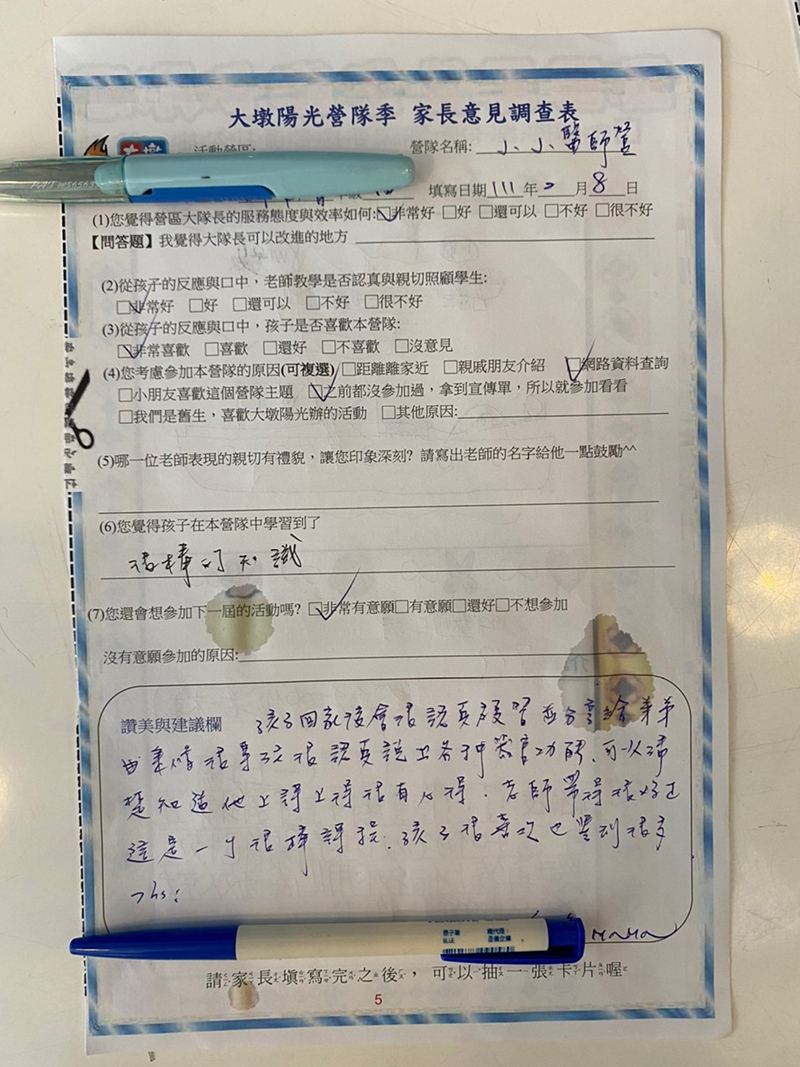 大墩陽光營隊季 家長意見調查表
營隊名稱: 小小醫師營
填寫日期 111 年 2 月 8 日
(1)您覺得營區大隊長的服務態度與效率如何:☑非常好 □好 □還可以 □不好 □很不好
【問答題】我覺得大隊長可以改進的地方
(2)從孩子的反應與口中,老師教學是否認真與親切照顧學生:
☑非常好 □好 □還可以 □不好 □很不好
(3)從孩子的反應與口中,孩子是否喜歡本營隊:
☑非常喜歡 □喜歡 □還好 □不喜歡 □沒意見
(4)您考慮參加本營隊的原因(可複選) □距離離家近 □親戚朋友介紹 ☑網路資料查詢
□小朋友喜歡這個營隊主題 ☑之前都沒參加過,拿到宣傳單,所以就參加看看
□我們是舊生,喜歡大墩陽光辦的活動 □其他原因:
(5)哪一位老師表現的親切有禮貌,讓您印象深刻? 請寫出老師的名字給他一點鼓勵^^
(6)您覺得孩子在本營隊中學習到了
很棒的知識
(7)您還會想參加下一屆的活動嗎? ☑非常有意願□有意願□還好□不想參加
沒有意願參加的原因:
讚美與建議欄 孩子回家後會很認真複習並分享給弟弟
很認真說出各種器官功能.可以清
楚知道他上課上得很有心得.老師
這是一个很棒課程.孩子很喜歡也學到很多
MaMa
請家長填寫完之後,可以抽一張卡片喔
5